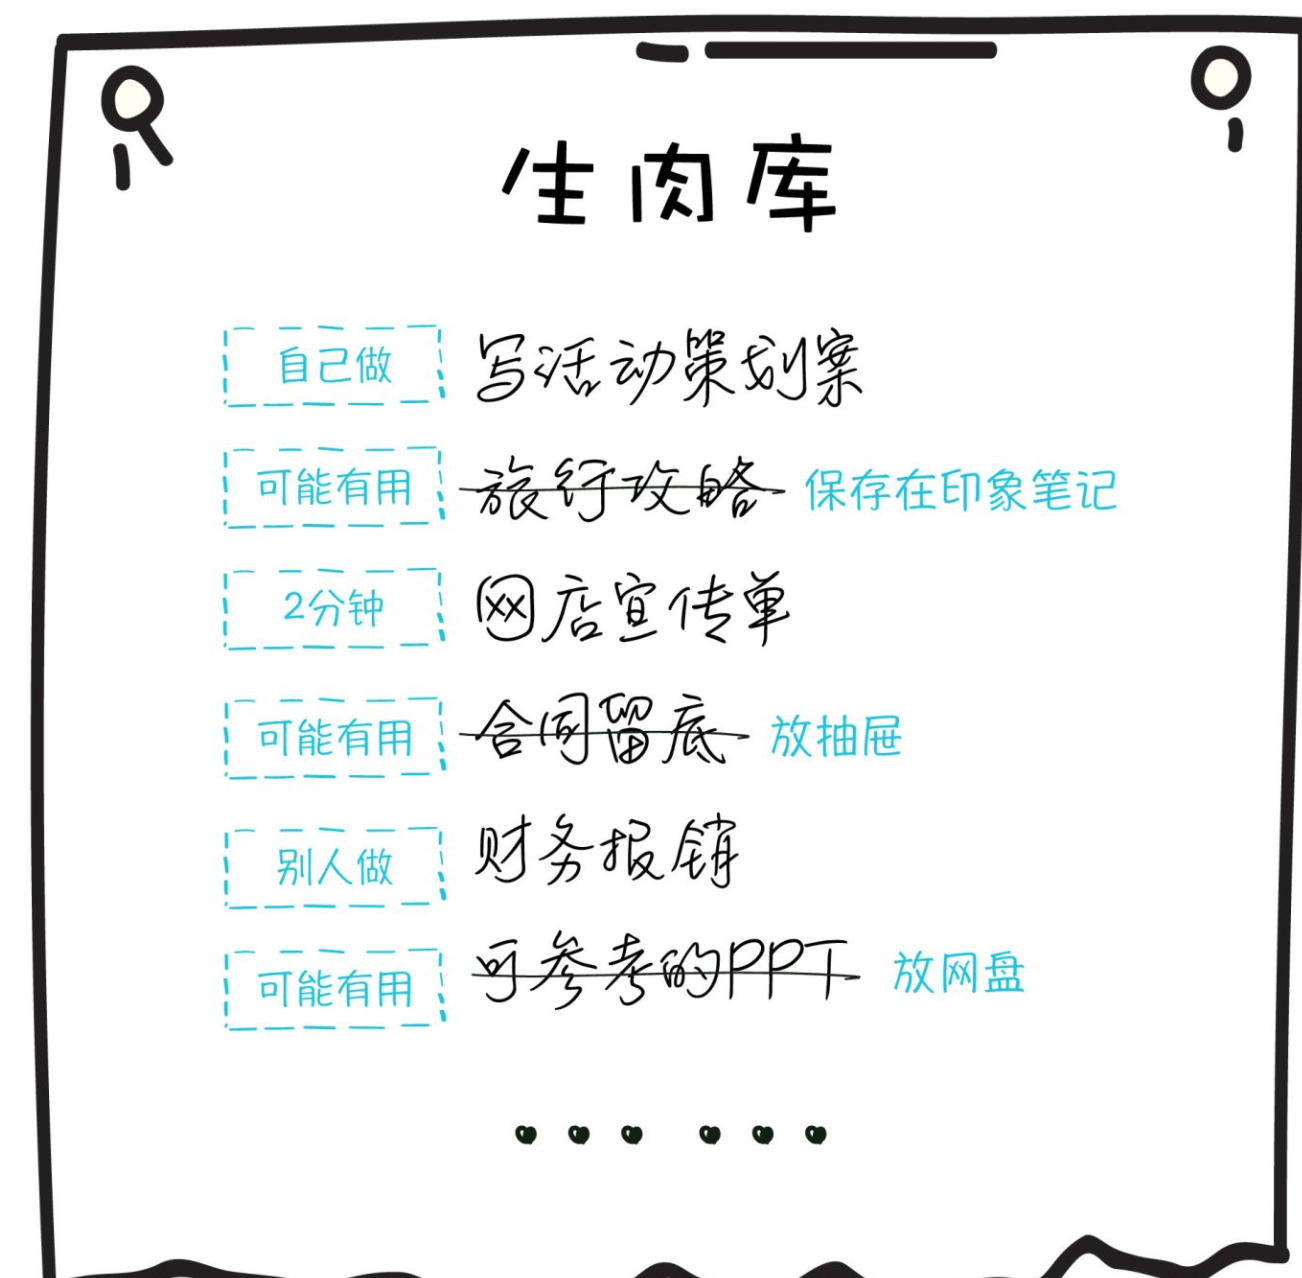 生肉库
自己做 写活动策划案
可能有用 旅行攻略 保存在印象笔记
2分钟 网店宣传单
可能有用 合同留底 放抽屉
别人做 财务报销
可能有用 可参考的PPT 放网盘